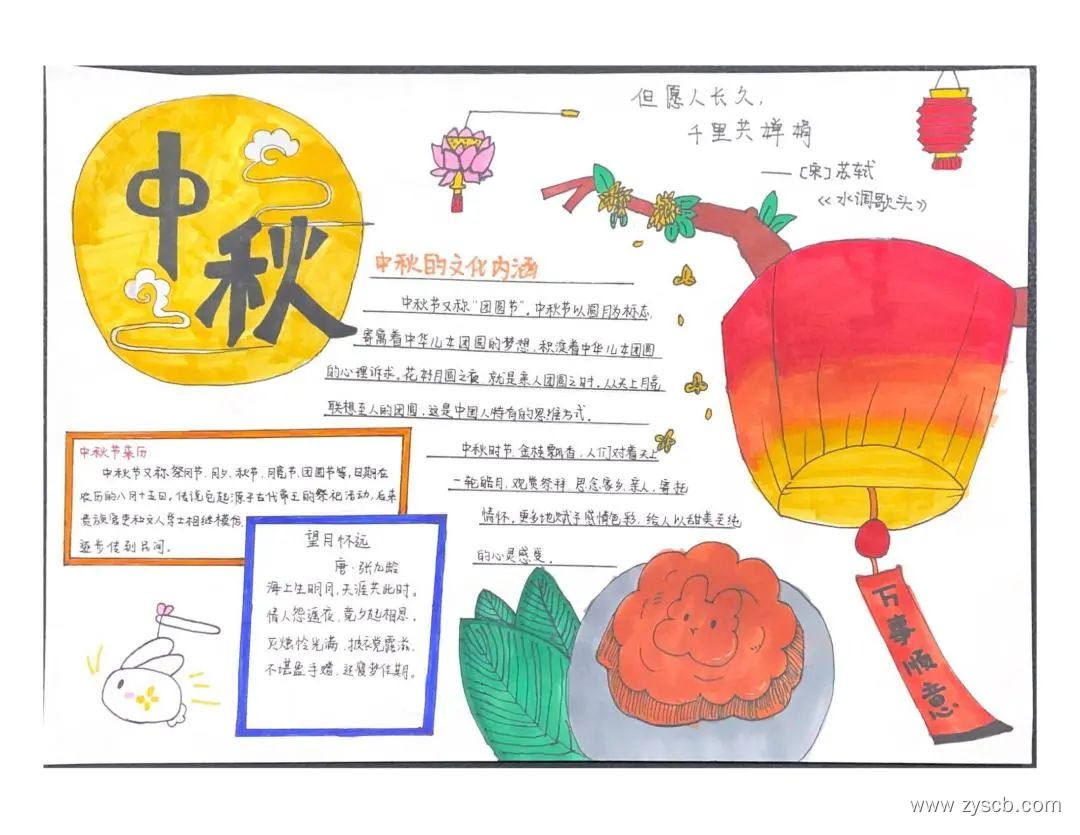 中秋
但愿人长久，
千里共婵娟
——［宋］苏轼
《水调歌头》
中秋的文化内涵
中秋节又称“团圆节”。中秋节以圆月为标志，
寄寓着中华儿女团圆的梦想，积淀着中华儿女团圆
的心理诉求。花好月圆之夜 就是亲人团圆之时，从天上月亮
联想至人的团圆，这是中国人特有的思维方式。
中秋时节 金桂飘香，人们对着天上
一轮皓月，观赏祭拜 思念家乡、亲人，寄托
情怀。更多地赋予感情色彩，给人以甜美至纯
的心灵感受。
中秋节来历
中秋节又称祭月节、月夕、秋节、月亮节、团圆节等，日期在
农历的八月十五日。传说它起源于古代帝王的祭祀活动，后来
贵族官吏和文人学士相继模仿
逐步传到民间。
望月怀远
唐·张九龄
海上生明月，天涯共此时。
情人怨遥夜，竟夕起相思。
灭烛怜光满，披衣觉露滋。
不堪盈手赠，还寝梦佳期。
万事顺意
www.zyscb.com